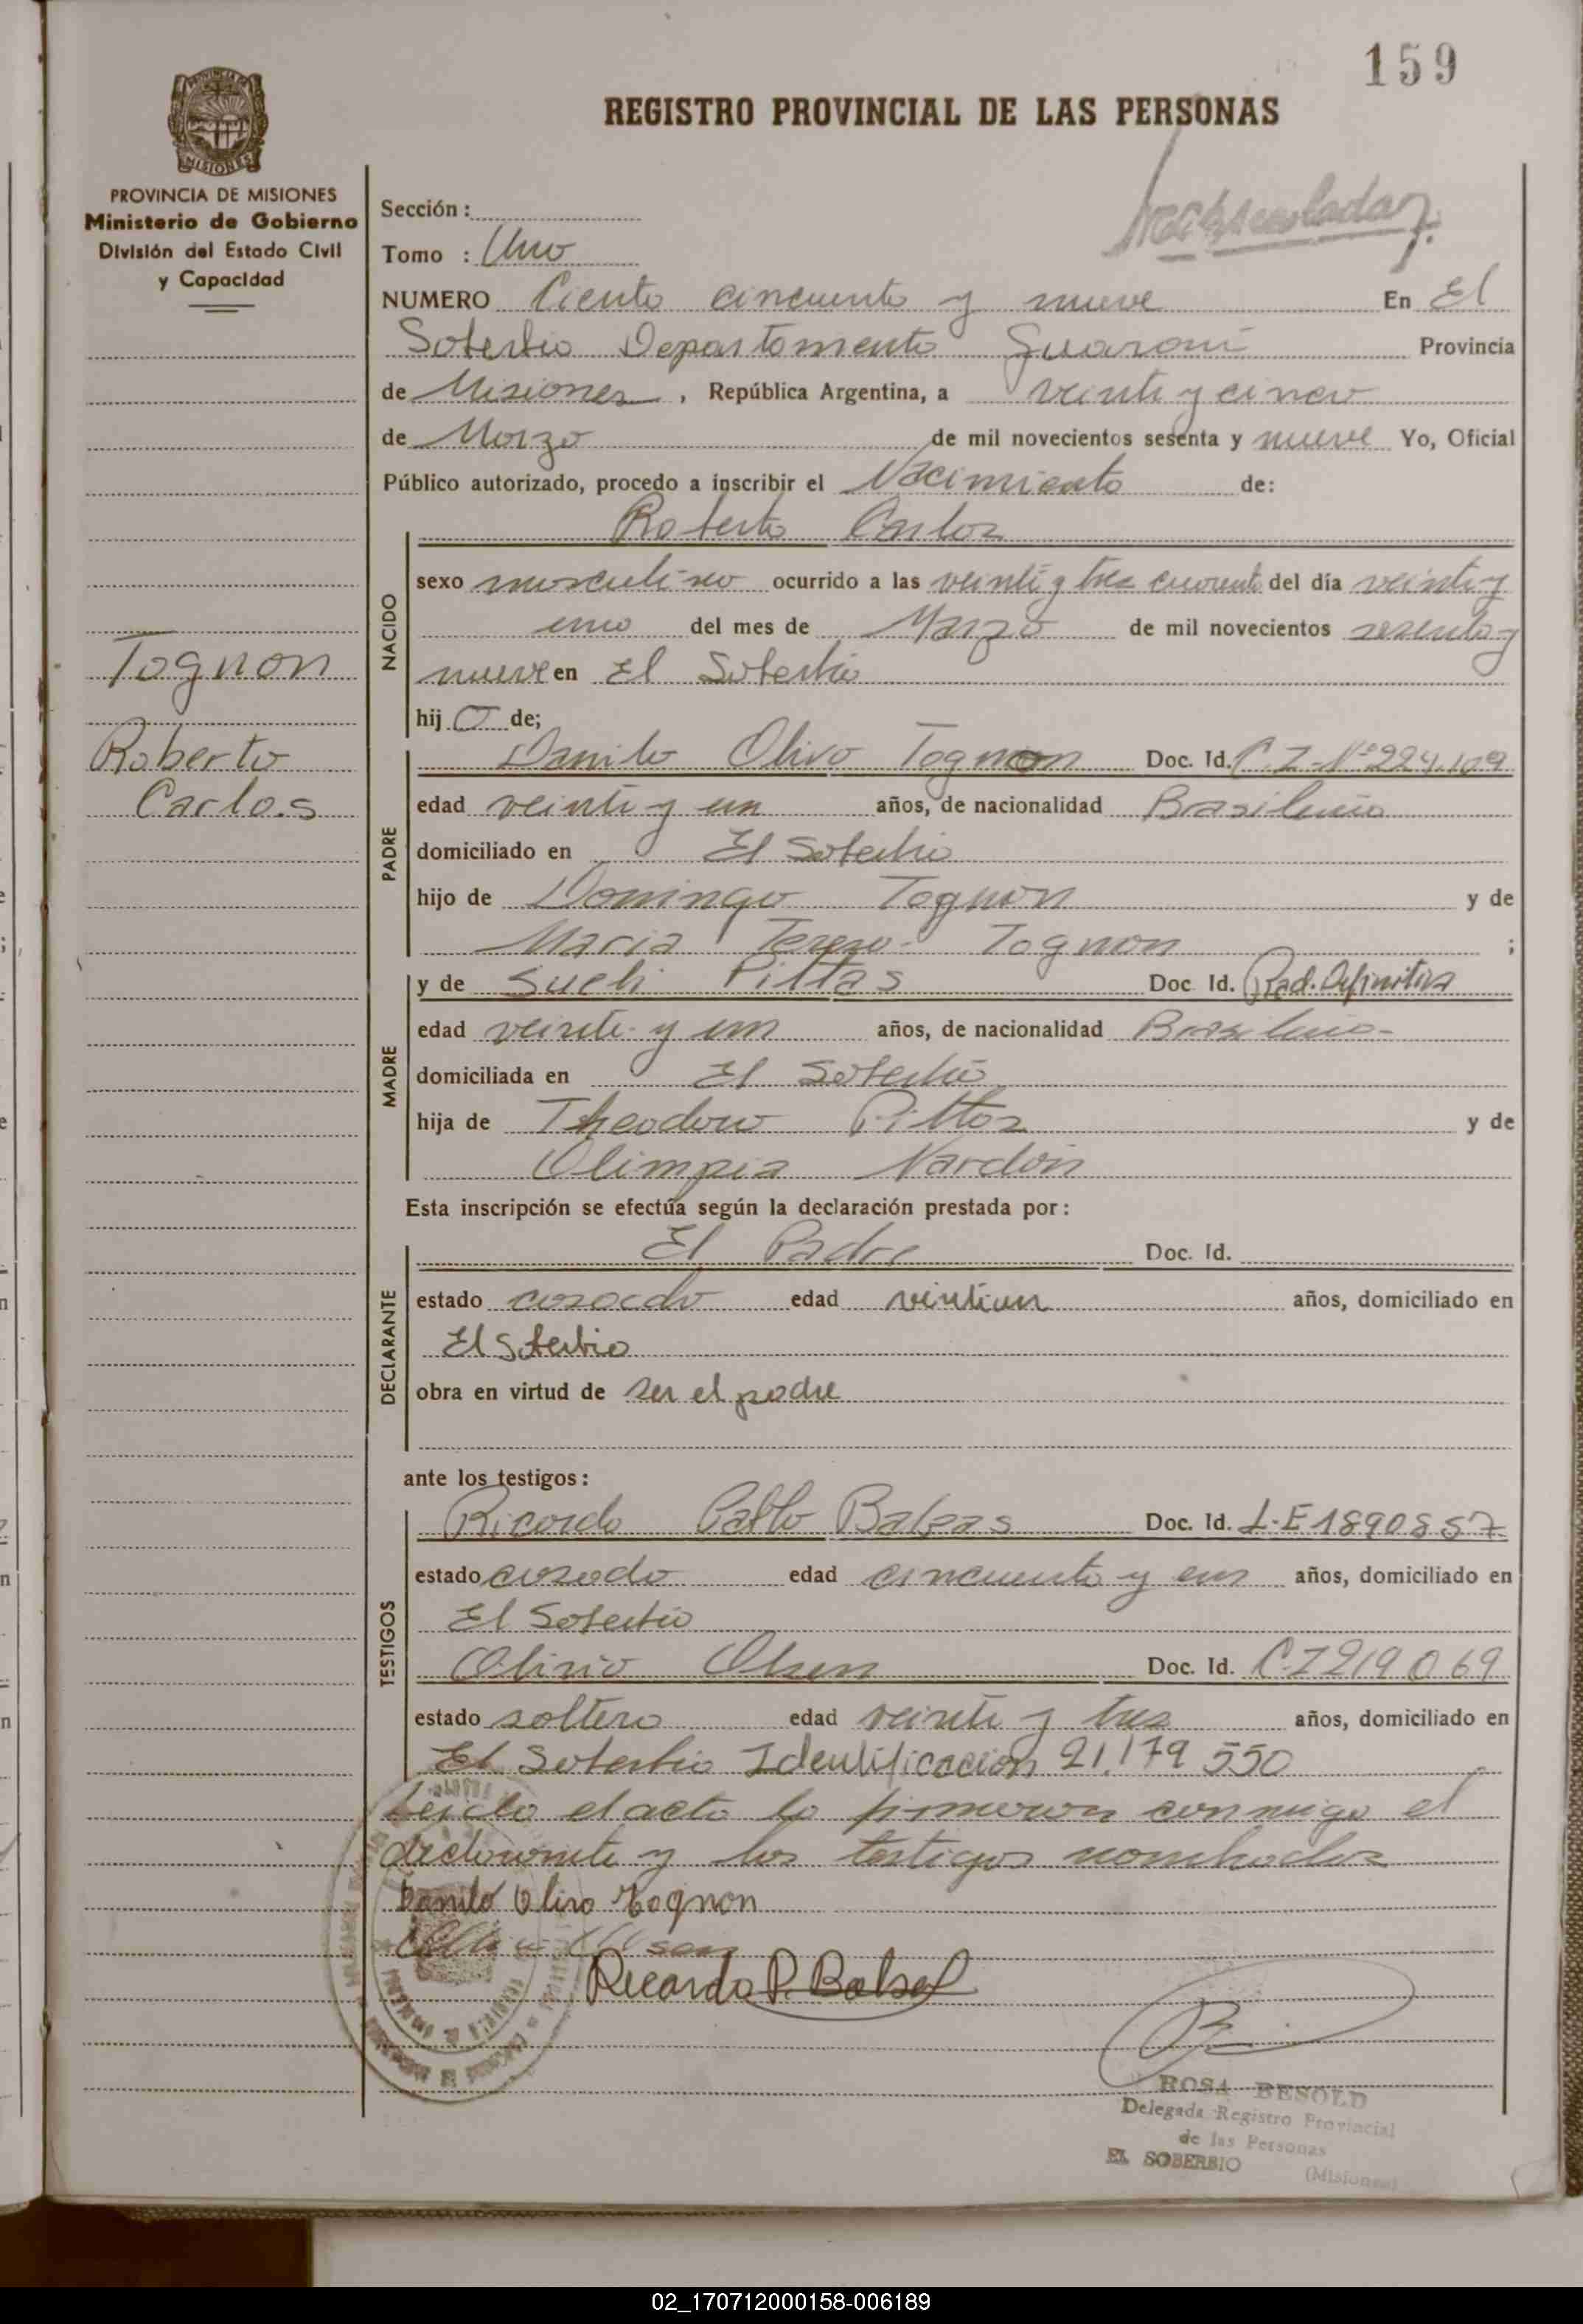 159
REGISTRO PROVINCIAL DE LAS PERSONAS
PROVINCIA DE
MISIONES
PROVINCIA DE MISIONES
Ministerio de Gobierno
División del Estado Civil
y Capacidad
Sección :
Tomo : Uno
NUMERO Ciento cincuenta y nueve En El
Soberbio Departamento Guaraní Provincia
de Misiones , República Argentina, a veinti y cinco
de Marzo de mil novecientos sesenta y nueve Yo, Oficial
Público autorizado, procedo a inscribir el Nacimiento de:
Roberto Carlos
NACIDO
sexo masculino ocurrido a las veinti y tres cuarenta del día veinti y
uno del mes de Marzo de mil novecientos sesenta y
nueve en El Soberbio
hij o de;
Tognon
Roberto
Carlos
PADRE
Danilo Olivo Tognon Doc. Id. C.I-Nº224.109
edad veinti y un años, de nacionalidad Brasileña
domiciliado en El Soberbio
hijo de Domingo Tognon y de
Maria Teresa Tognon ;
MADRE
y de Sueli Pittas Doc Id. Rad. Definitiva
edad veinte y un años, de nacionalidad Brasileña-
domiciliada en El Soberbio
hija de Theodoro Pittos y de
Olimpia Nardon
Esta inscripción se efectúa según la declaración prestada por:
DECLARANTE
El Padre Doc. Id.
estado casado edad veintiun años, domiciliado en
El Soberbio
obra en virtud de ser el padre
ante los testigos:
TESTIGOS
Ricardo Pablo Balzas Doc. Id. L-E 1890857
estado casado edad cincuenta y un años, domiciliado en
El Soberbio
Olivio Olsen Doc. Id. C.I 219069
estado soltero edad veinti y tres años, domiciliado en
El Soberbio Identificacion 21.179 550
Leido el acto lo firmaron conmigo el
declarante y los testigos nombrados
Danilo Olivo Tognon
Ricardo P. Balsa
ROSA BESOLD
Delegada Registro Provincial
de las Personas
EL SOBERBIO (Misiones)
02_170712000158-006189